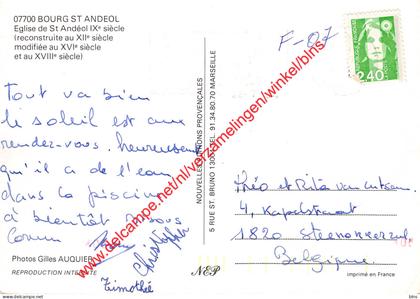 07700 BOURG ST ANDEOL
Eglise de St Andéol IXe siècle
(reconstruite au XIIe siècle
modifiée au XVIe siècle
et au XVIIIe siècle)
F-07
2,40
Tout va bien
le soleil est aux
rendez-vous, heureusement
qu'il a de l'eau
dans la piscine
à bientôt Bisous
Christophe
Timothé
Photos Gilles AUQUIER
REPRODUCTION INTERDITE
NOUVELLES EDITIONS PROVENÇALES
5 RUE ST. BRUNO 13004 TEL. 91.34.80.70 MARSEILLE
Théo et Rita
4, Kapelstraat
1820 Steenokkerzeel
Belgique
NEP
imprimé en France
www.delcampe.net/nl/verzamelingen/winkel/blns